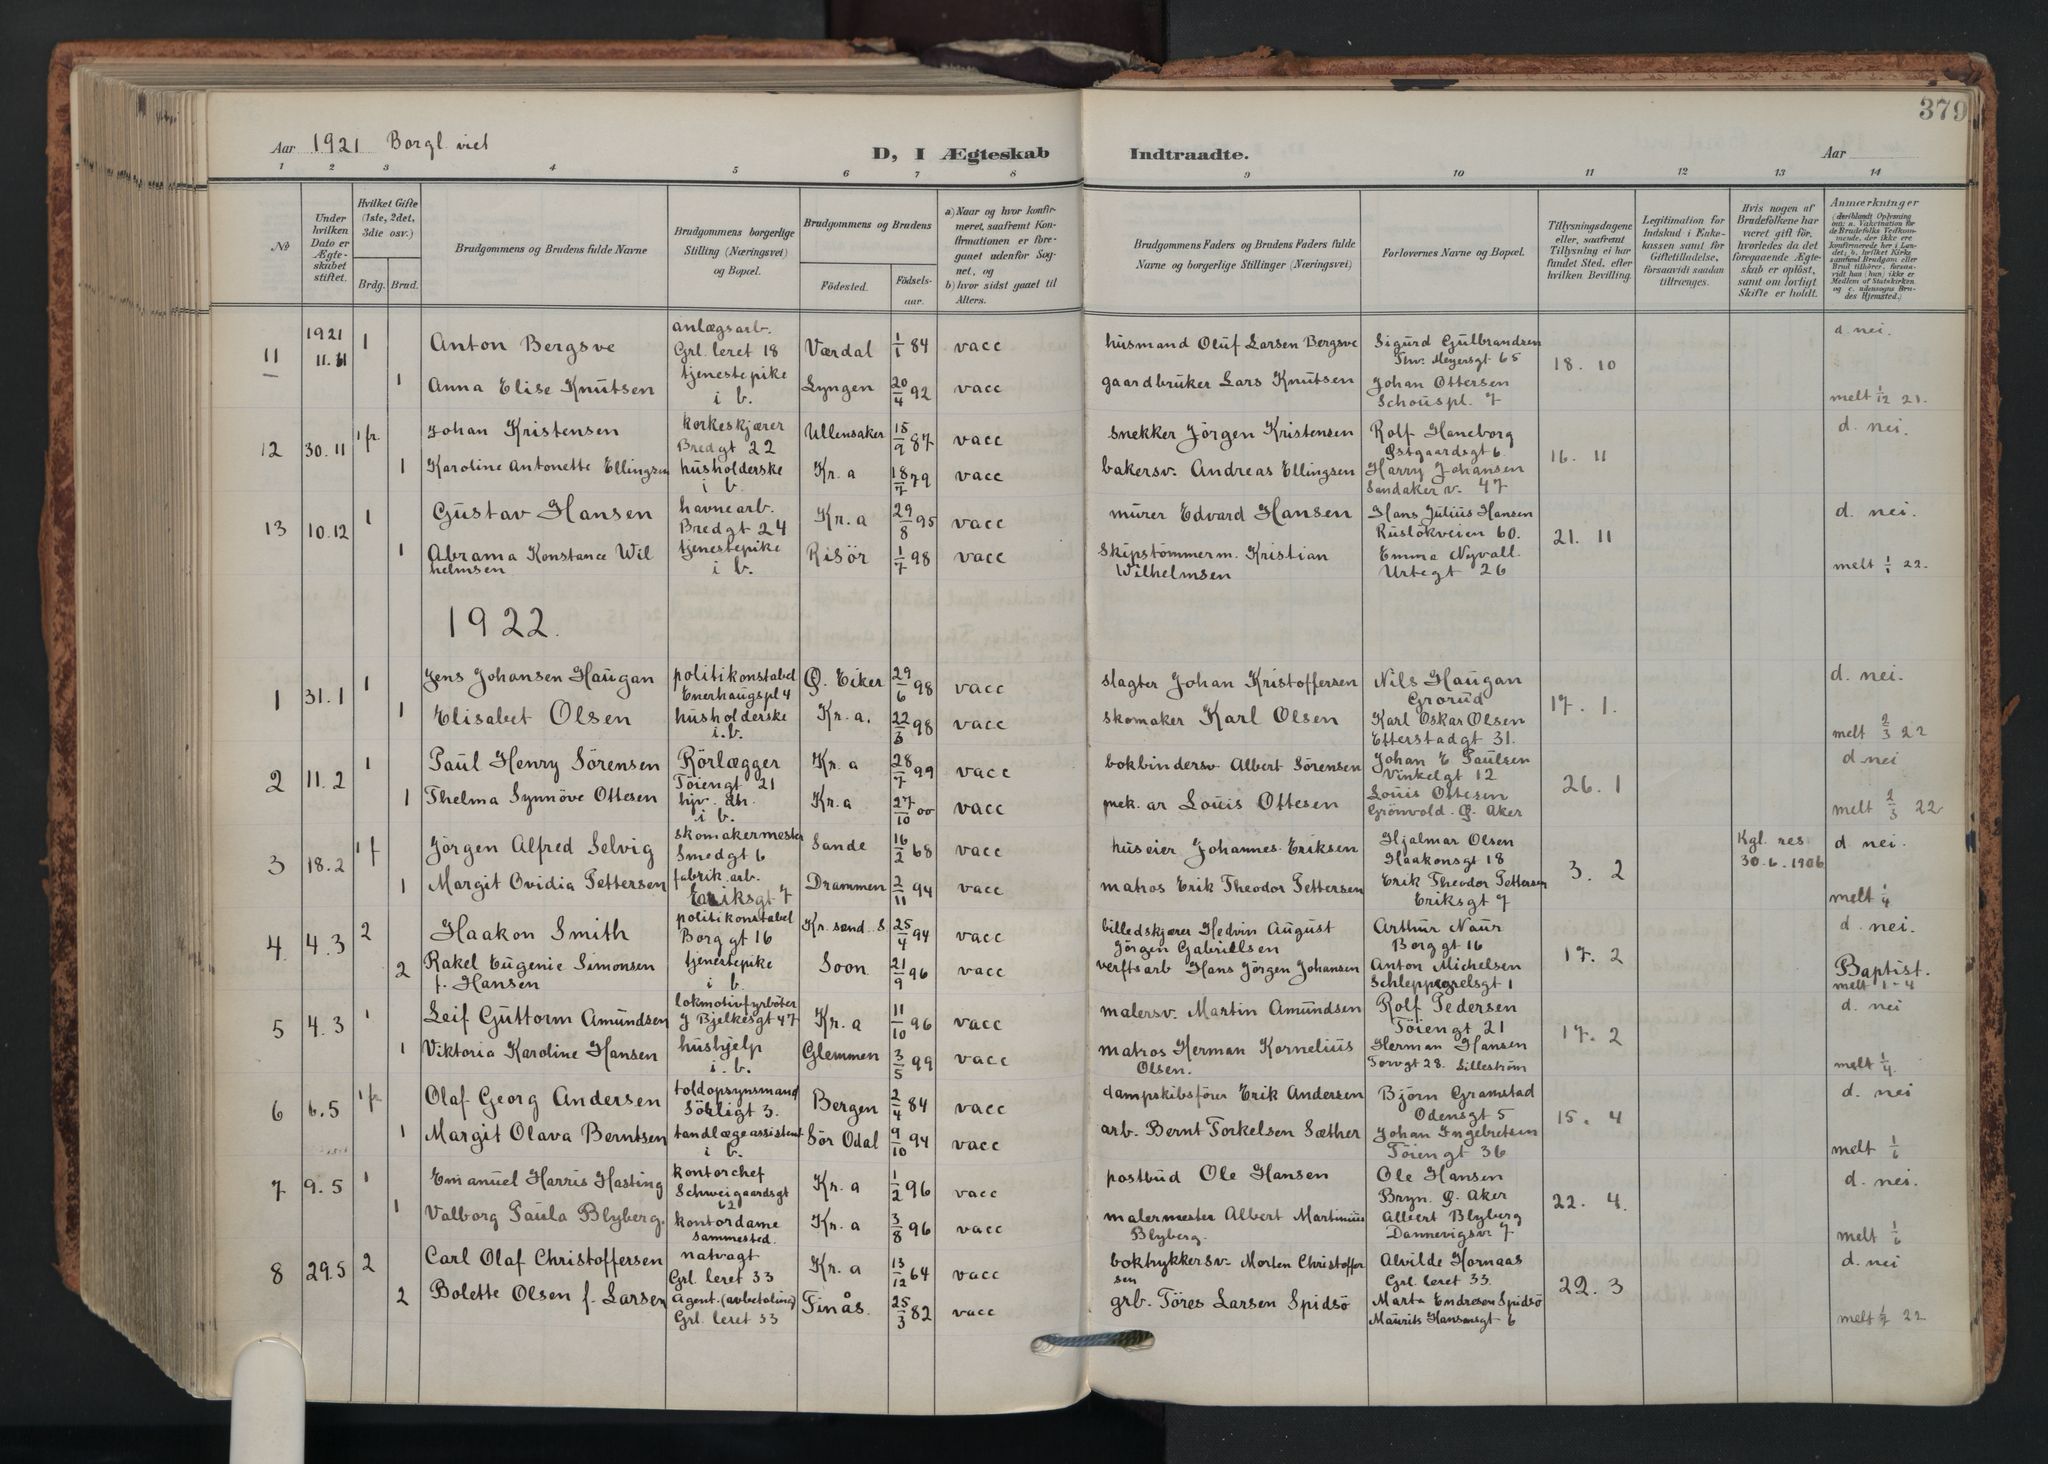 379
Aar 1921 Borgl. viet D, I Ægteskab Indtraadte. Aar
1 2 3 4 5 6 7 8 9 10 11 12 13 14
No
Under hvilken Dato er Ægteskabet stiftet.
Hvilket Gifte (1ste, 2det, 3die osv.)
Brdg. Brud.
Brudgommens og Brudens fulde Navne
Brudgommens borgerlige Stilling (Næringsvei) og Bopæl.
Brudgommens og Brudens
Fødested. Fødselsaar.
a) Naar og hvor konfirmeret, saafremt Konfirmationen er foregaaet udenfor Sognet, og
b) hvor sidst gaaet til Alters.
Brudgommens Faders og Brudens Faders fulde Navne og borgerlige Stillinger (Næringsvei)
Forlovernes Navne og Bopæl.
Tillysningsdagene eller, saafremt Tillysning ei har fundet Sted, efter hvilken Bevilling.
Legitimation for Indskud i Enkekassen samt for Giftetilladelse, forsaavidt saadan tiltrænges.
Hvis nogen af Brudefolkene har været gift før, hvorledes da det foregaaende Ægteskab er opløst, samt om lovligt Skifte er holdt.
Anmærkninger
11 1921 11. 11 1 Anton Bergsve anlægsarb. Grl. leret 18 Værdal 1/1 84 vacc husmand Oluf Larsen Bergsve Sigurd Gulbrandsen Thv. Meyersgt 65 18. 10 d. nei.
1 Anna Elise Knutsen tjenestepike i b. Lyngen 20/4 92 vacc gaardbruker Lars Knutsen Johan Ottersen Schouspl. 7 melt 1/12 21.
12 30. 11 1 fr Johan Kristensen korkeskjærer Bredgt 22 Ullensaker 15/9 87 vacc snekker Jörgen Kristensen Rolf Haneborg Østgaardsgt 6 16. 11 d. nei.
1 Karoline Antonette Ellingsen husholderske i b. Kr. a 18/7 79 vacc bakersv. Andreas Ellingsen Harry Johansen Sandaker v. 47
13 10. 12 1 Gustav Hansen havnearb. Bredgt 24 Kr. a 29/8 95 vacc murer Edvard Hansen Hans Julius Hansen Ruslökveien 60. 21. 11 d. nei.
1 Abrama Konstance Wilhelmsen tjenestepike i b. Risör 1/7 98 vacc skipstömmerm. Kristian Wilhelmsen Emma Nyvall Urtegt 26 melt 1/1 22.
1922.
1 31. 1 1 Jens Johansen Haugan politikonstabel Enerhaugspl 4 Ø. Eiker 29/6 98 vacc slagter Johan Kristoffersen Nils Haugan Grorud 17. 1. d. nei.
1 Elisabet Olsen husholderske i. b. Kr. a. 22/3 98 vacc skomaker Karl Olsen Karl Oskar Olsen Etterstadgt 31. melt 2/3 22
2 11. 2 1 Paul Henry Sörensen Rörlægger Töiengt 21 Kr. a 28/7 99 vacc bokbindersv Albert Sörensen Johan E Paulsen Vinkelgt 12 26. 1 d nei
1 Thelma Synnöve Ottesen hjv. dh. i b. Kr. a 27/10 00 vacc mek. ar Louis Ottesen Louis Ottesen Grönvold. Ø. Aker melt 2/3 22
3 18. 2 1 f Jörgen Alfred Selvig skomakermester Smedgt 6 Sande 16/2 68 vacc huseier Johannes Eriksen Hjalmar Olsen Haakonsgt 18 3. 2 Kgl. res 30. 6. 1906 d. nei.
1 Margit Ovidia Pettersen fabrik. arb. Eriksgt 7 Drammen 2/11 94 vacc matros Erik Theodor Pettersen Erik Theodor Pettersen Eriksgt 7 melt 1/4
4 4. 3 2 Haakon Smith politikonstabel Borggt 16 Kr. sand. S 25/4 94 vacc billedskjærer Hedvin August Jörgen Gabrielsen Arthur Naur Borggt 16 17. 2 d. nei.
2 Rakel Eugenie Simonsen f. Hansen tjenestepike i b. Soon 21/9 96 vacc verftsarb Hans Jörgen Johansen Anton Michelsen Schleppegrelsgt 1 Baptist. melt 1-4
5 4. 3 1 Leif Guttorm Amundsen lokomotivfyrböter J Bjelkesgt 47 Kr. a 11/10 96 vacc malersv. Martin Amundsen Rolf Pedersen Töiengt 21 17. 2 d. nei
1 Viktoria Karoline Hansen hushjelp i. b. Glemmen 3/5 99 vacc matros Herman Kornelius Olsen. Herman Hansen Torvgt 28. Lilleström melt 1/4
6 6. 5 1 fr Olaf Georg Andersen toldopsynsmand Sörligt 3. Bergen 2/4 84 vacc dampskibsförer Erik Andersen Björn Gramstad Odensgt 5 15. 4 d. nei
1 Margit Olava Berntsen tandlægeassistent i b. Sör Odal 9/10 94 vacc arb. Bernt Torkelsen Sæther Johan Ingebretsen Töiengt 36 melt 1/6
7 9. 5 1 Emanuel Harris Hasting kontorchef Schweigaardsgt 12 Kr. a 1/2 96 vacc postbud Ole Hansen Ole Hansen Bryn. Ø. Aker 22. 4. d. nei.
1 Valborg Paula Blyberg. kontordame sammested. Kr. a 3/8 96 vacc malermester Albert Martinius Blyberg. Albert Blyberg Dannevigsv 7 melt 1/6
8 29.5 2 Carl Olaf Christoffersen natvagt Grl. leret 33 Kr. a 13/12 64 vacc boktrykkersv. Morten Christoffersen Alvilde Hornaas Grl. leret 33. 22. 3 d. nei
2 Bolette Olsen f. Larsen Agent. (avbetaling) Grl. leret 33 Finås. 25/3 82 vacc grb. Töres Larsen Spidsö Marta Endresen Spidsö Maurits Hansensgt 6 melt 1/7 22